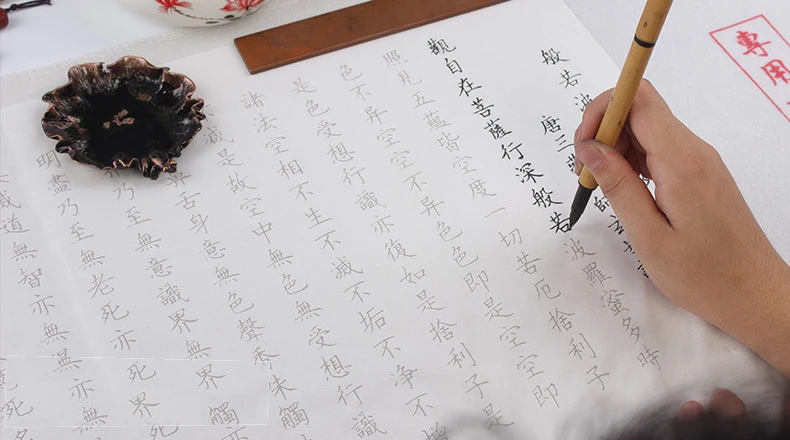 專用
般若波
唐三
師玄
觀自在菩薩行深般若波羅蜜多時
照見五蘊皆空度一切苦厄捨利子
色不異空空不異色色即是空空即
是色受想行識亦復如是捨利子是
諸法空相不生不滅不垢不淨不增
減是故空中無色無受想行識
舌身意無色聲香未觸
乃至無意識界無觸
明盡乃至無老死亦死界
道無智亦無
亦無